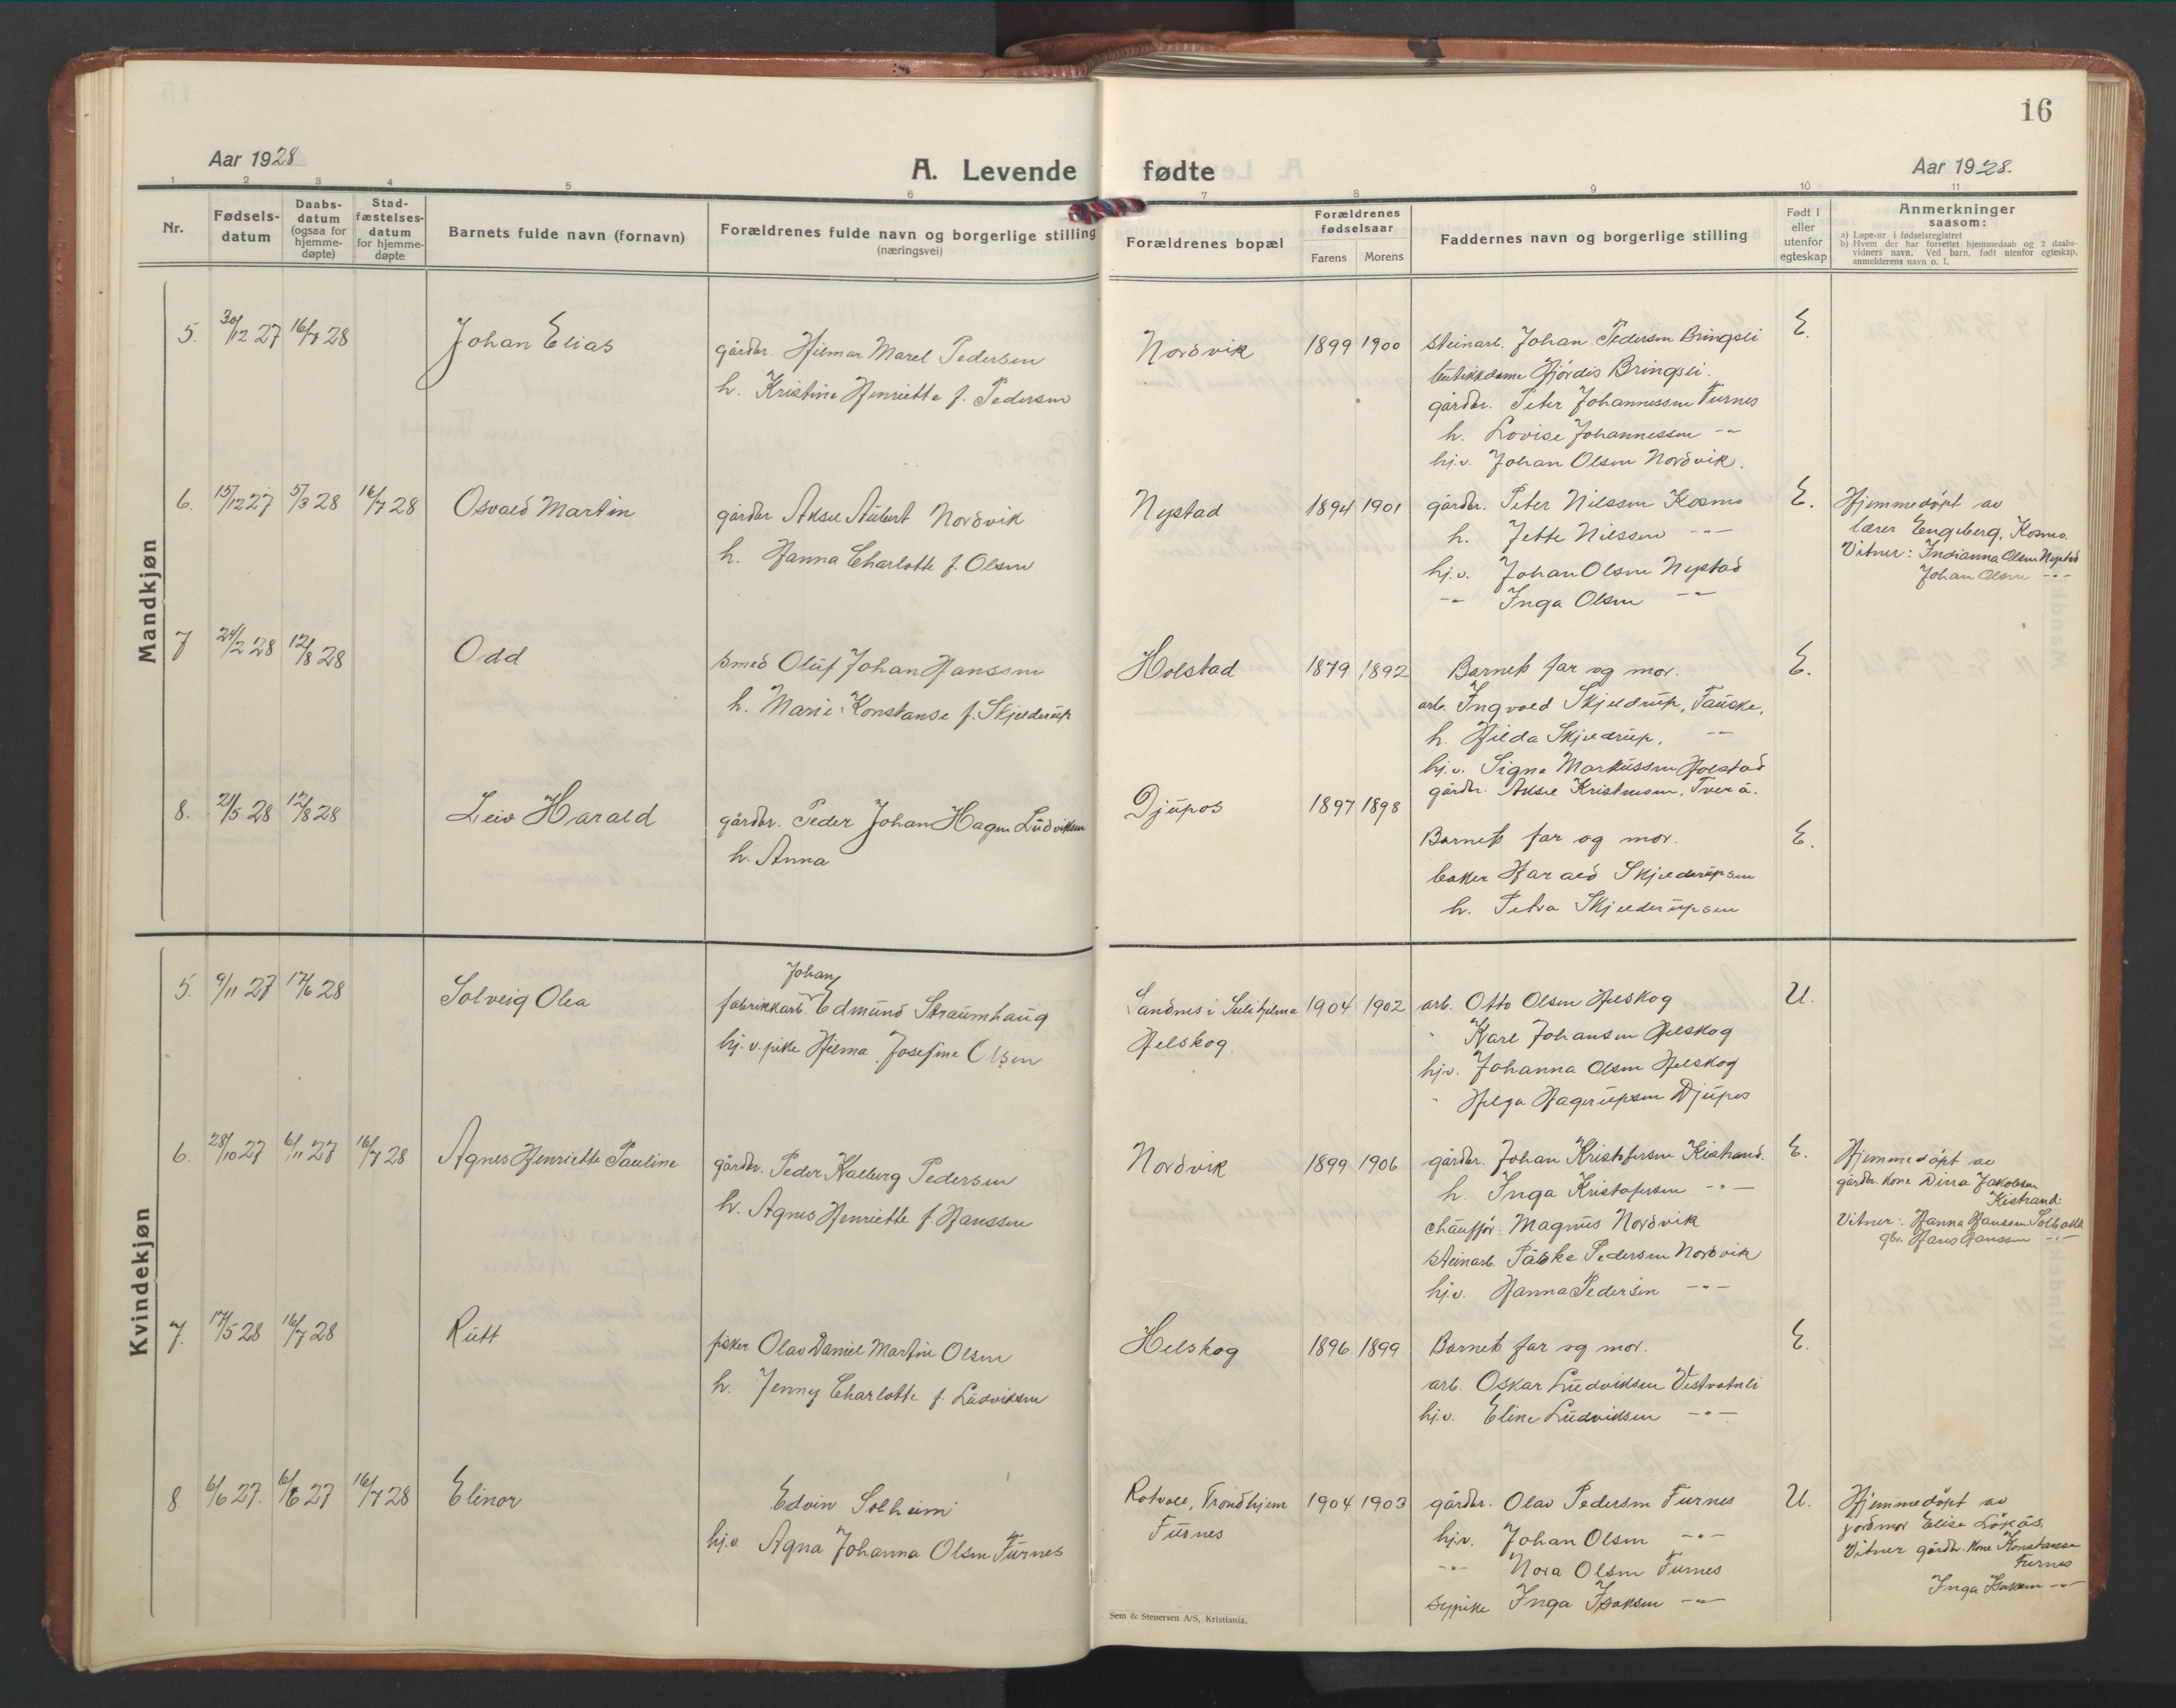 16
Aar 1928
A. Levende fødte
Aar 1928.
1 2 3 4 5 6 7 8 9 10 11
Nr.
Fødsels-
datum
Daabs-
datum
(ogsaa for
hjemme-
døpte)
Stad-
fæstelses-
datum
for hjemme-
døpte
Barnets fulde navn (fornavn)
Forældrenes fulde navn og borgerlige stilling
(næringsvei)
Forældrenes bopæl
Forældrenes
fødselsaar
Farens Morens
Faddernes navn og borgerlige stilling
Født i
eller
utenfor
egteskap
Anmerkninger
saasom:
a) Løpe-nr i fødselsregistret
b) Hvem der har forrettet hjemmedaab og 2 daabs-
vidners navn. Ved barn, født utenfor egteskap,
anmelderens navn o. l.
Mandkjøn
5. 30/12 27 16/7 28 Johan Elias
gårdbr. Hilmar Marel Pedersen
h. Kristine Henriette f. Pedersen
Nordvik 1899 1900
steinarb. Johan Pedersen Bringsli
butikkdame Hjördis Bringsli.
gårdbr. Peter Johannessen Furnes
h. Lovise Johannessen -"-
hj.v. Johan Olsen Nordvik.
E.
6. 15/12 27 5/3 28 16/7 28 Osvald Martin
gårdbr Aksel Aubert Nordvik
h. Hanna Charlotte f. Olsen
Nystad 1894 1901
gårdbr. Peter Nilssen Kosmo
h. Jette Nilssen -"-
hj.v. Johan Olsen Nystad
-"- Inga Olsen -"-
E.
Hjemmedöpt av
lærer Engeberg, Kosmo.
Vitner: Indianna Olsen Nystad
Johan Olsen -"-
7 24/2 28 12/8 28 Odd
smed Oluf Johan Hanssen
h. Marie Konstanse f. Skjelderup
Holstad 1879 1892
Barnets far og mor.
arb. Ingvald Skjeldrup, Fauske.
h. Hilda Skjeldrup, -"-
hj.v. Signe Markussen Holstad
gårdbr. Aksel Kristensen, Tverå.
E.
8. 21/5 28 12/8 28 Leiv Harald
gårdbr. Peder Johan Hagen Ludviksen
h. Anna
Djupos 1897 1898
Barnets far og mor.
baker Harald Skjelderupsen
h. Petra Skjelderupsen
E.
Kvindekjøn
5. 9/11 27 17/6 28 Solveig Olea
Johan
fabrikkarb. Edmund Straumhaug
hj.v. pike Hilma Josefine Olsen
Sandnes i Sulitjelma
Helskog.
1904 1902
arb. Otto Olsen Helskog
" Karl Johansen Helskog
hjv. Johanna Olsen Helskog
" Helga Hagerupsen Djupos
U.
6. 28/10 27 6/11 27 16/7 28 Agnes Henriette Pauline
gårdbr. Peder Kalberg Pedersen
h. Agnes Henriette f. Hanssen
Nordvik 1899 1906
gårdbr. Johan Kristofersen Kistrand.
h. Inga Kristofersen -"-
chauffør Magnus Nordvik
steinarb. Påske Pedersen Nordvik
hj.v. Hanna Pedersen -"-
E.
Hjemmedöpt av
gårdbr. kone Dina Jakobsen
Kistrand.
Vitner: Hanna Hanssen Solbakk
gbr. Hans Hanssen -"-
7. 17/5 28 16/7 28 Rutt
fisker Olav Daniel Martin Olsen
h. Jenny Charlotte f. Ludviksen
Helskog 1896 1899
Barnets far og mor.
arb. Oskar Ludviksen Vestvatnli
hj.v. Eline Ludviksen -"-
E.
8. 6/6 27. 6/6 27 16/7 28 Elinor
Edvin Solheim
hj.v. Agna Johanna Olsen Furnes
Rotvoll, Trondhjem
Furnes
1904 1903
gårdbr. Olav Pedersen Furnes
hj.v. Johan Olsen -"-
-"- Nora Olsen Furnes
sypike Inga Isaksen -"-
U.
Hjemmedöpt av
jordmor Elise Lökås.
Vitner gårdbr. kone Konstanse
Furnes
Inga Isaksen -"-
Sem & Stenersen A/S, Kristiania.